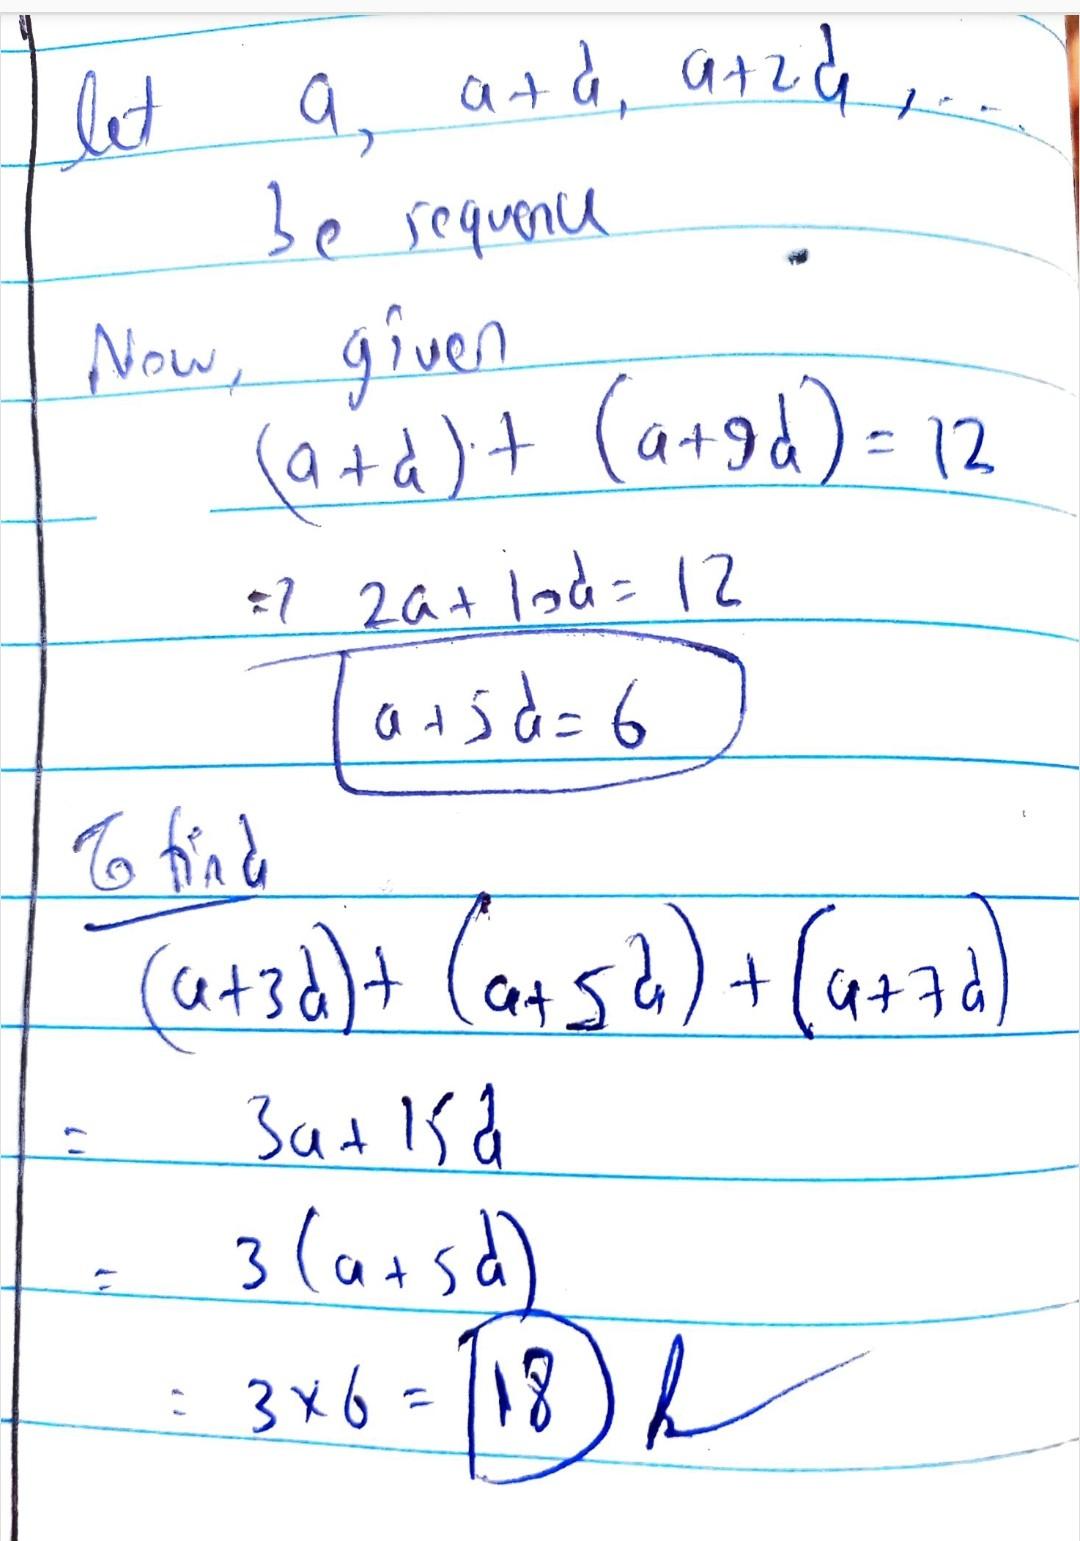 let a, a+d, a+2d, ...
be sequence
Now, given
(a+d)+ (a+9d)=12
=> 2a+10d=12
a+5d=6
To find
(a+3d)+ (a+5d)+(a+7d)
= 3a+15d
= 3(a+5d)
= 3×6 = 18